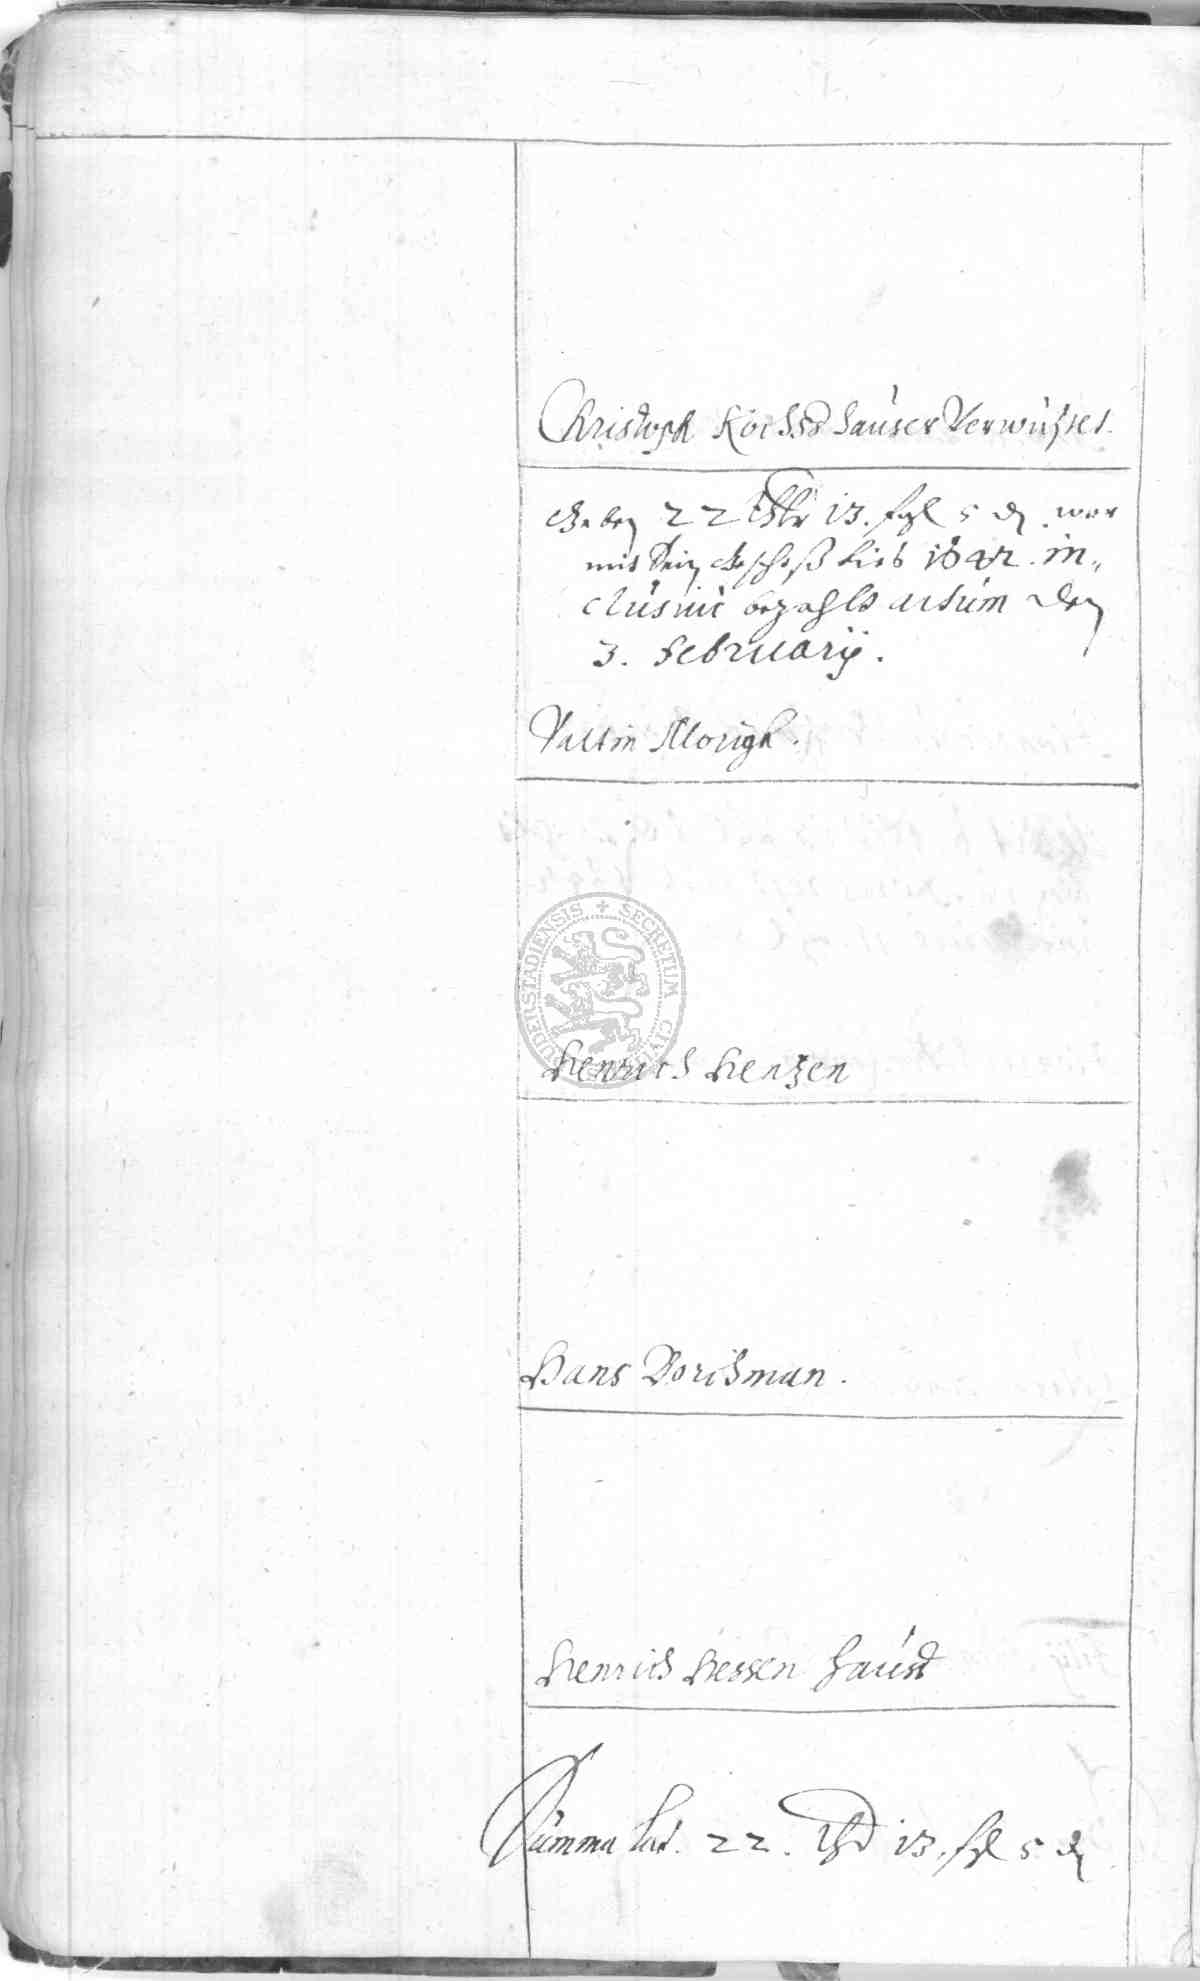 Christoph Kochss hauser Verwustet.
Geben 22 thlr 13. sgl 5 d wor
mit sein geschoß bis 1642. in„
clusiue bezahlt actum den
3. februarij.
Valtin Morigk.
SECRETUM CIVIT DUDERSTADIENSIS
Henrich Hentzen
Hans Borchman.
Henrich Hessen hauß
Summa lat. 22. thl 13. sgl 5 d